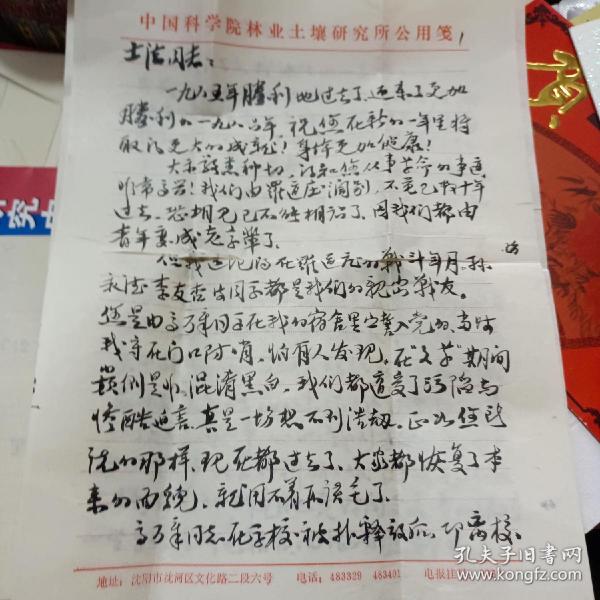 中国科学院林业土壤研究所公用笺
1
同志：
一九八五年胜利地过去了，迎来了更加
胜利的一九八六年，祝您在新的一年里将
取得更大的成就！身体更加健康！
大示敬悉种切，得知您从事革命的事迹
非常高兴！我们由罗道庄阔别，不觉已数十年
过去，恐相见已不能相识了，因我们都由
青年变成老字辈了。
但我还记得在罗道庄的战斗年月，孙
李友杏等同学都是我们的亲密战友。
您是由高万章同志在我的宿舍里宣誓入党的，当时
我守在门口防哨，怕有人发现，在“文革”期间
颠倒是非，混淆黑白，我们都遭受了污陷与
惨酷迫害，真是一场想不到浩劫，正如您所
说的那样，现在都过去了，大家都恢复了本
来的面貌，就用不着再语毛了。
高万章同志在学校被扑释放后，即离校。
地址：沈阳市沈河区文化路二段六号 电话：483329 483401 电报挂
孔夫子旧书网
www.kongfz.com